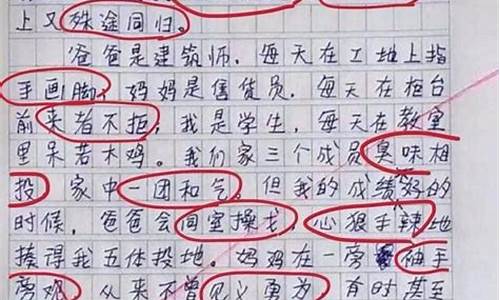 上又殊途同归。
爸爸是建筑师，每天在工地上指
手画脚；妈妈是售货员，每天在柜台
前来者不拒；我是学生，每天在教室
里呆若木鸡。我们家三个成员臭味相
投，家中一团和气。但我的成绩不好的
时候，爸爸会同室操戈，心狠手辣地
揍得我五体投地。妈妈在一旁袖手
旁观，从来不曾见义勇为。有时甚至